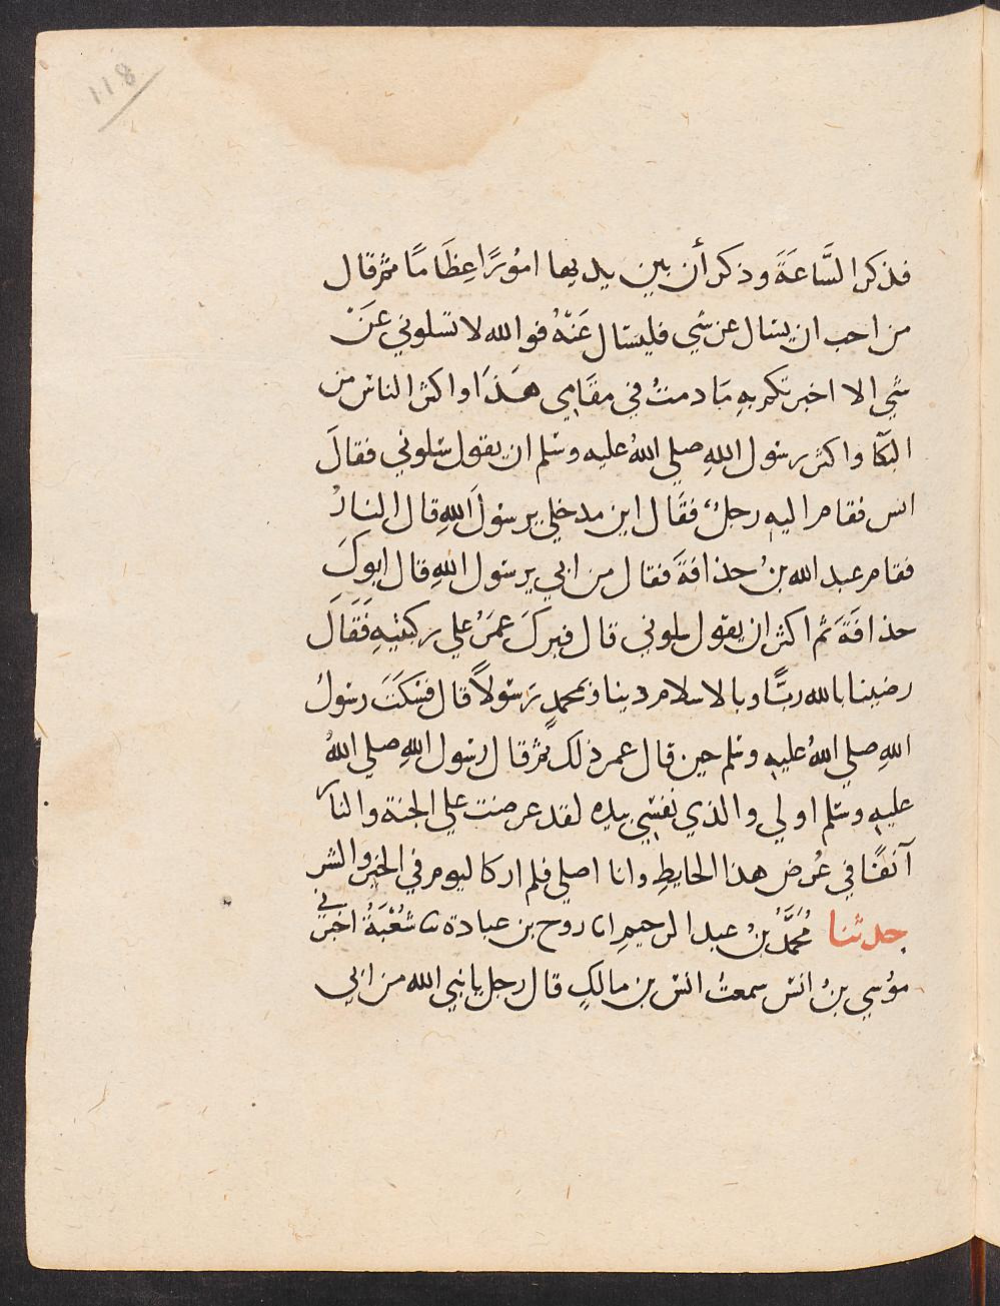 118
فذكر السَّاعَةَ وذكر أن بين يديها امُورًا عِظَامًا ثم قال
من احب ان يسال عن شي فليسال عَنْهُ فوالله لا تسلوني عَنْ
شي الا اخبرتكم بهِ مَا دمتُ في مقَامِي هَذَا واكثر الناس من
البكَا واكثر رسول اللهِ صلي اللهُ عليه وسلم ان يقول سلوني فقالَ
انس فقام اليهِ رجلٌ فقَال اين مدخلي يرسولَ اللهِ قال النارُ
فقام عبد الله بنُ حذافةَ فقال من ابي يرسول اللهِ قال ابوكَ
حذافَةَ ثم اكثر ان يقول سلوني قال فبركَ عمَرُ علي ركبتيهِ فَقَالَ
رضينا بالله ربًّا وبالاسلام دينا وبمحمدٍ رَسولاً قال فسَكَتَ رسولُ
اللهِ صلي اللهُ عليهِ وسلم حين قال عمر ذلك ثم قال رسول اللهِ صلي اللهُ
عليهِ وسلم اولي والذي نفسِي بيده لقد عرضت علي الجنة والنار
آنفًا في عُرض هذا الحايطِ وانا اصلي فلم ار كاليوم في الخير والشر
حدثنا مُحَمَّدُ بنُ عبد الرحيمِ انا روح بن عبادة نا شُعْبَةُ اخبرني
مؤسي بنُ انس سمعتُ انس بن مالكٍ قال رجل يا نبي الله من ابي